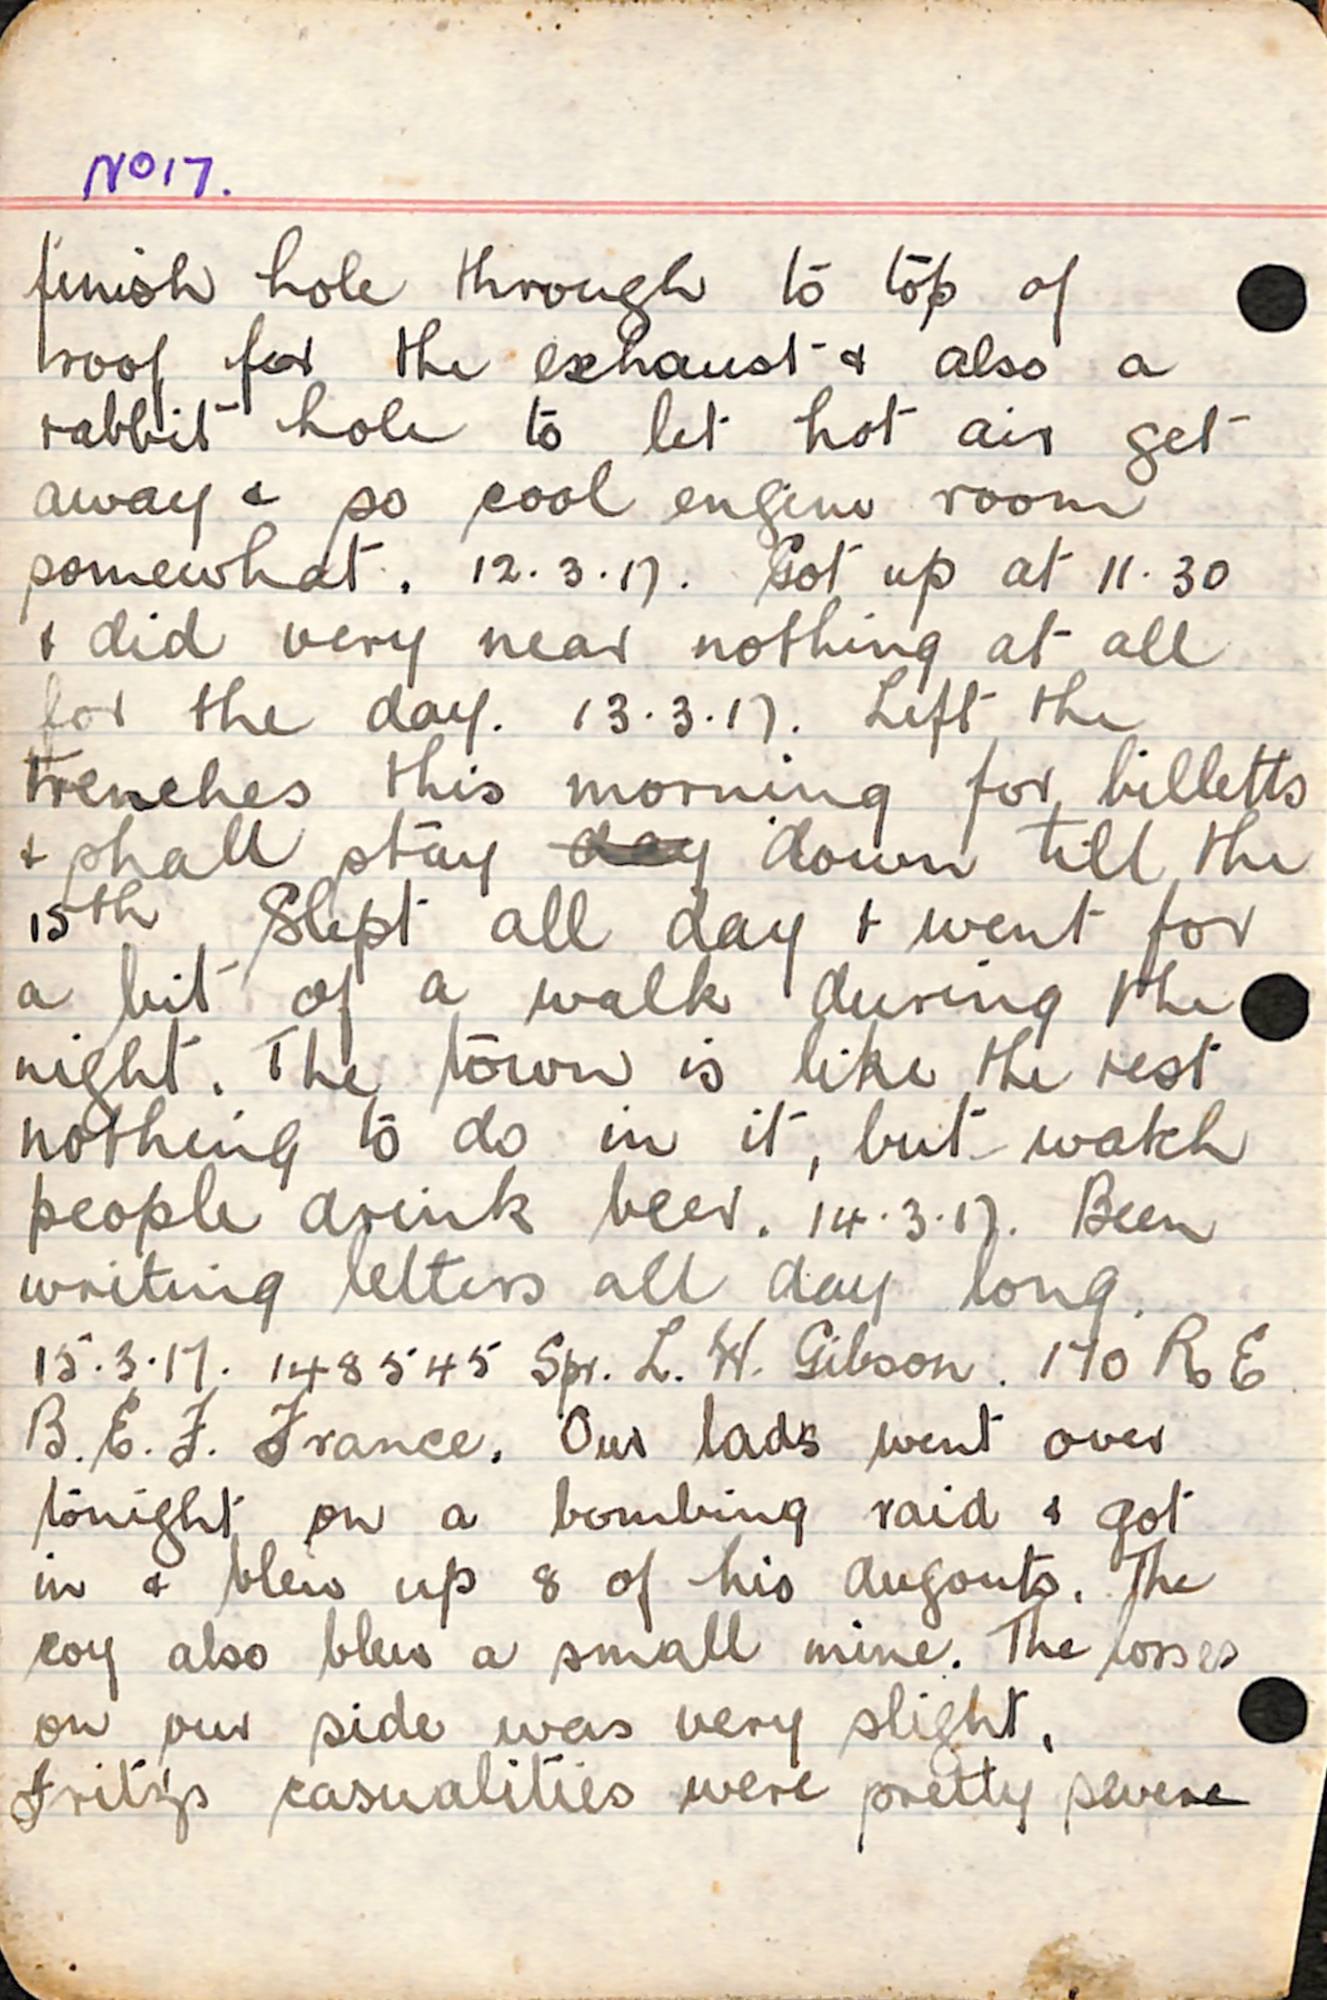 No 17.
finish hole through to top of
roof for the exhaust & also a
rabbit hole to let hot air get
away & so cool engine room
somewhat. 12.3.17. Got up at 11.30
& did very near nothing at all
for the day. 13.3.17. Left the
trenches this morning for billetts
& shall stay day down till the
15th Slept all day & went for
a bit of a walk during the
night. The town is like the rest
nothing to do in it, but watch
people drink beer. 14.3.17. Been
writing letters all day long.
15.3.17. 148545 Spr. L. W. Gibson. 170 R E
B. E. F. France. Our lads went over
tonight on a bombing raid & got
in & blew up 8 of his dugouts. The
coy also blew a small mine. The losses
on our side was very slight.
Fritz's casualities were pretty severe